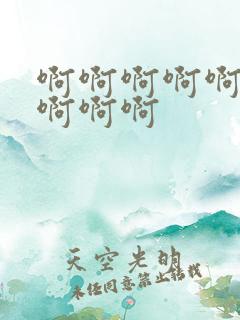 啊啊啊啊啊
啊啊啊
天空光明
未经同意禁止转载